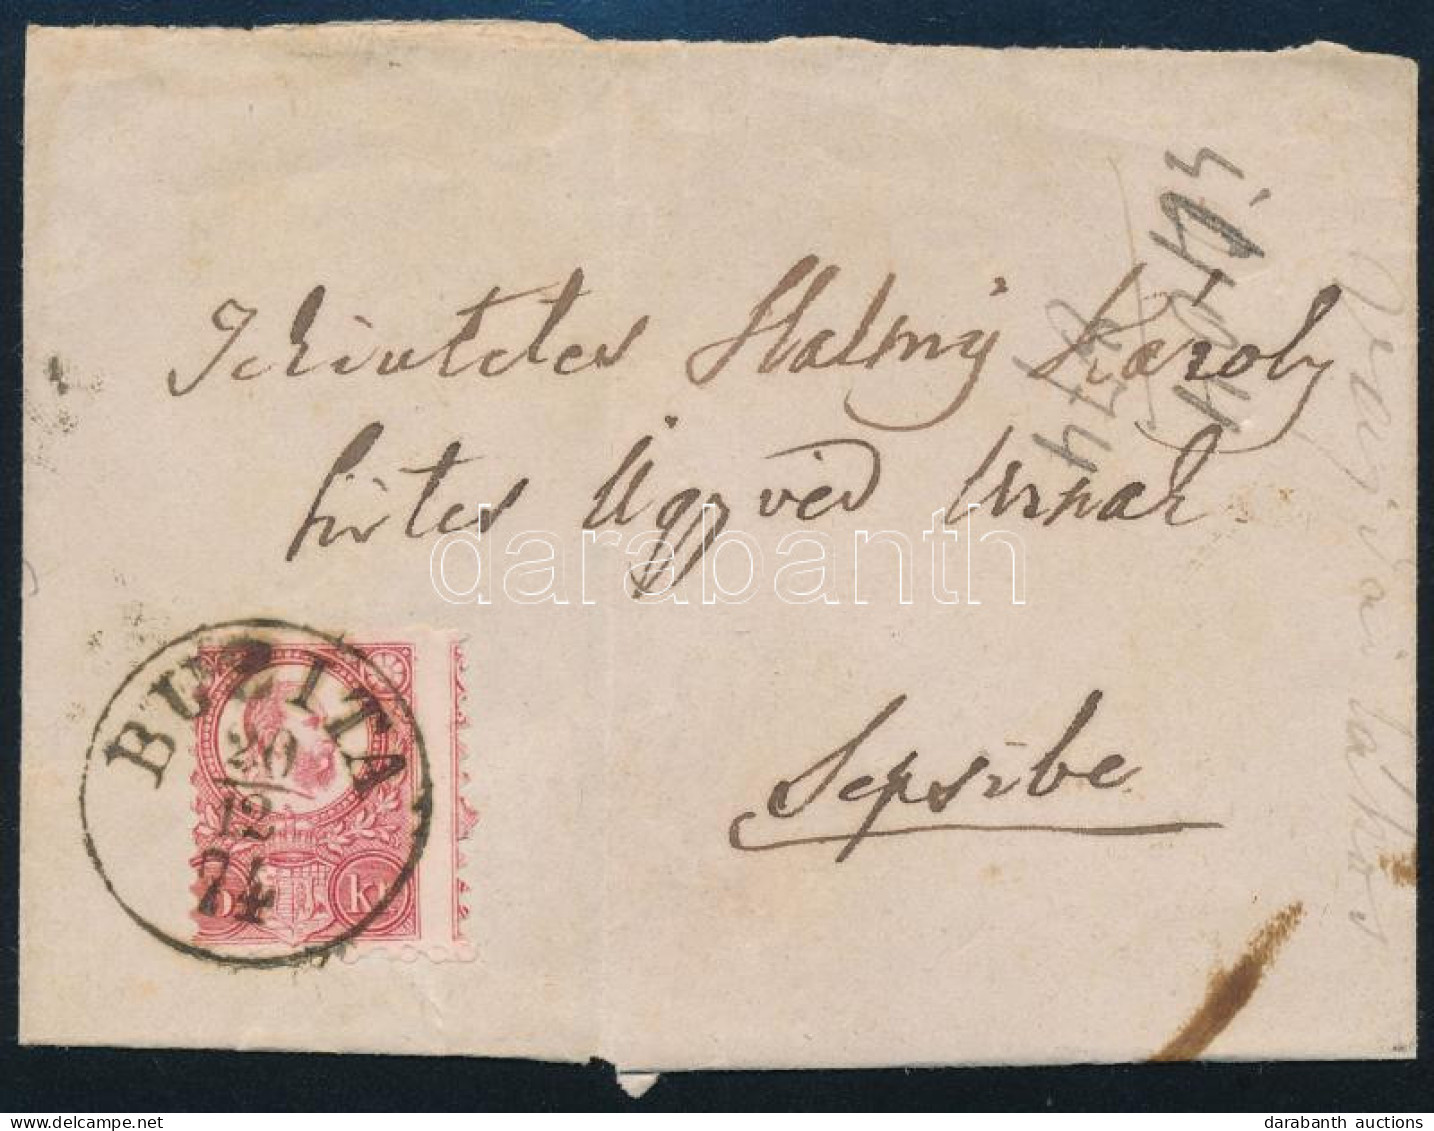 Tekintetes Halmy Károly
hites Ügyvéd Urnak
Sepsibe
BUZITA
20
12
74
5 kr
darabanth
darabanth auctions